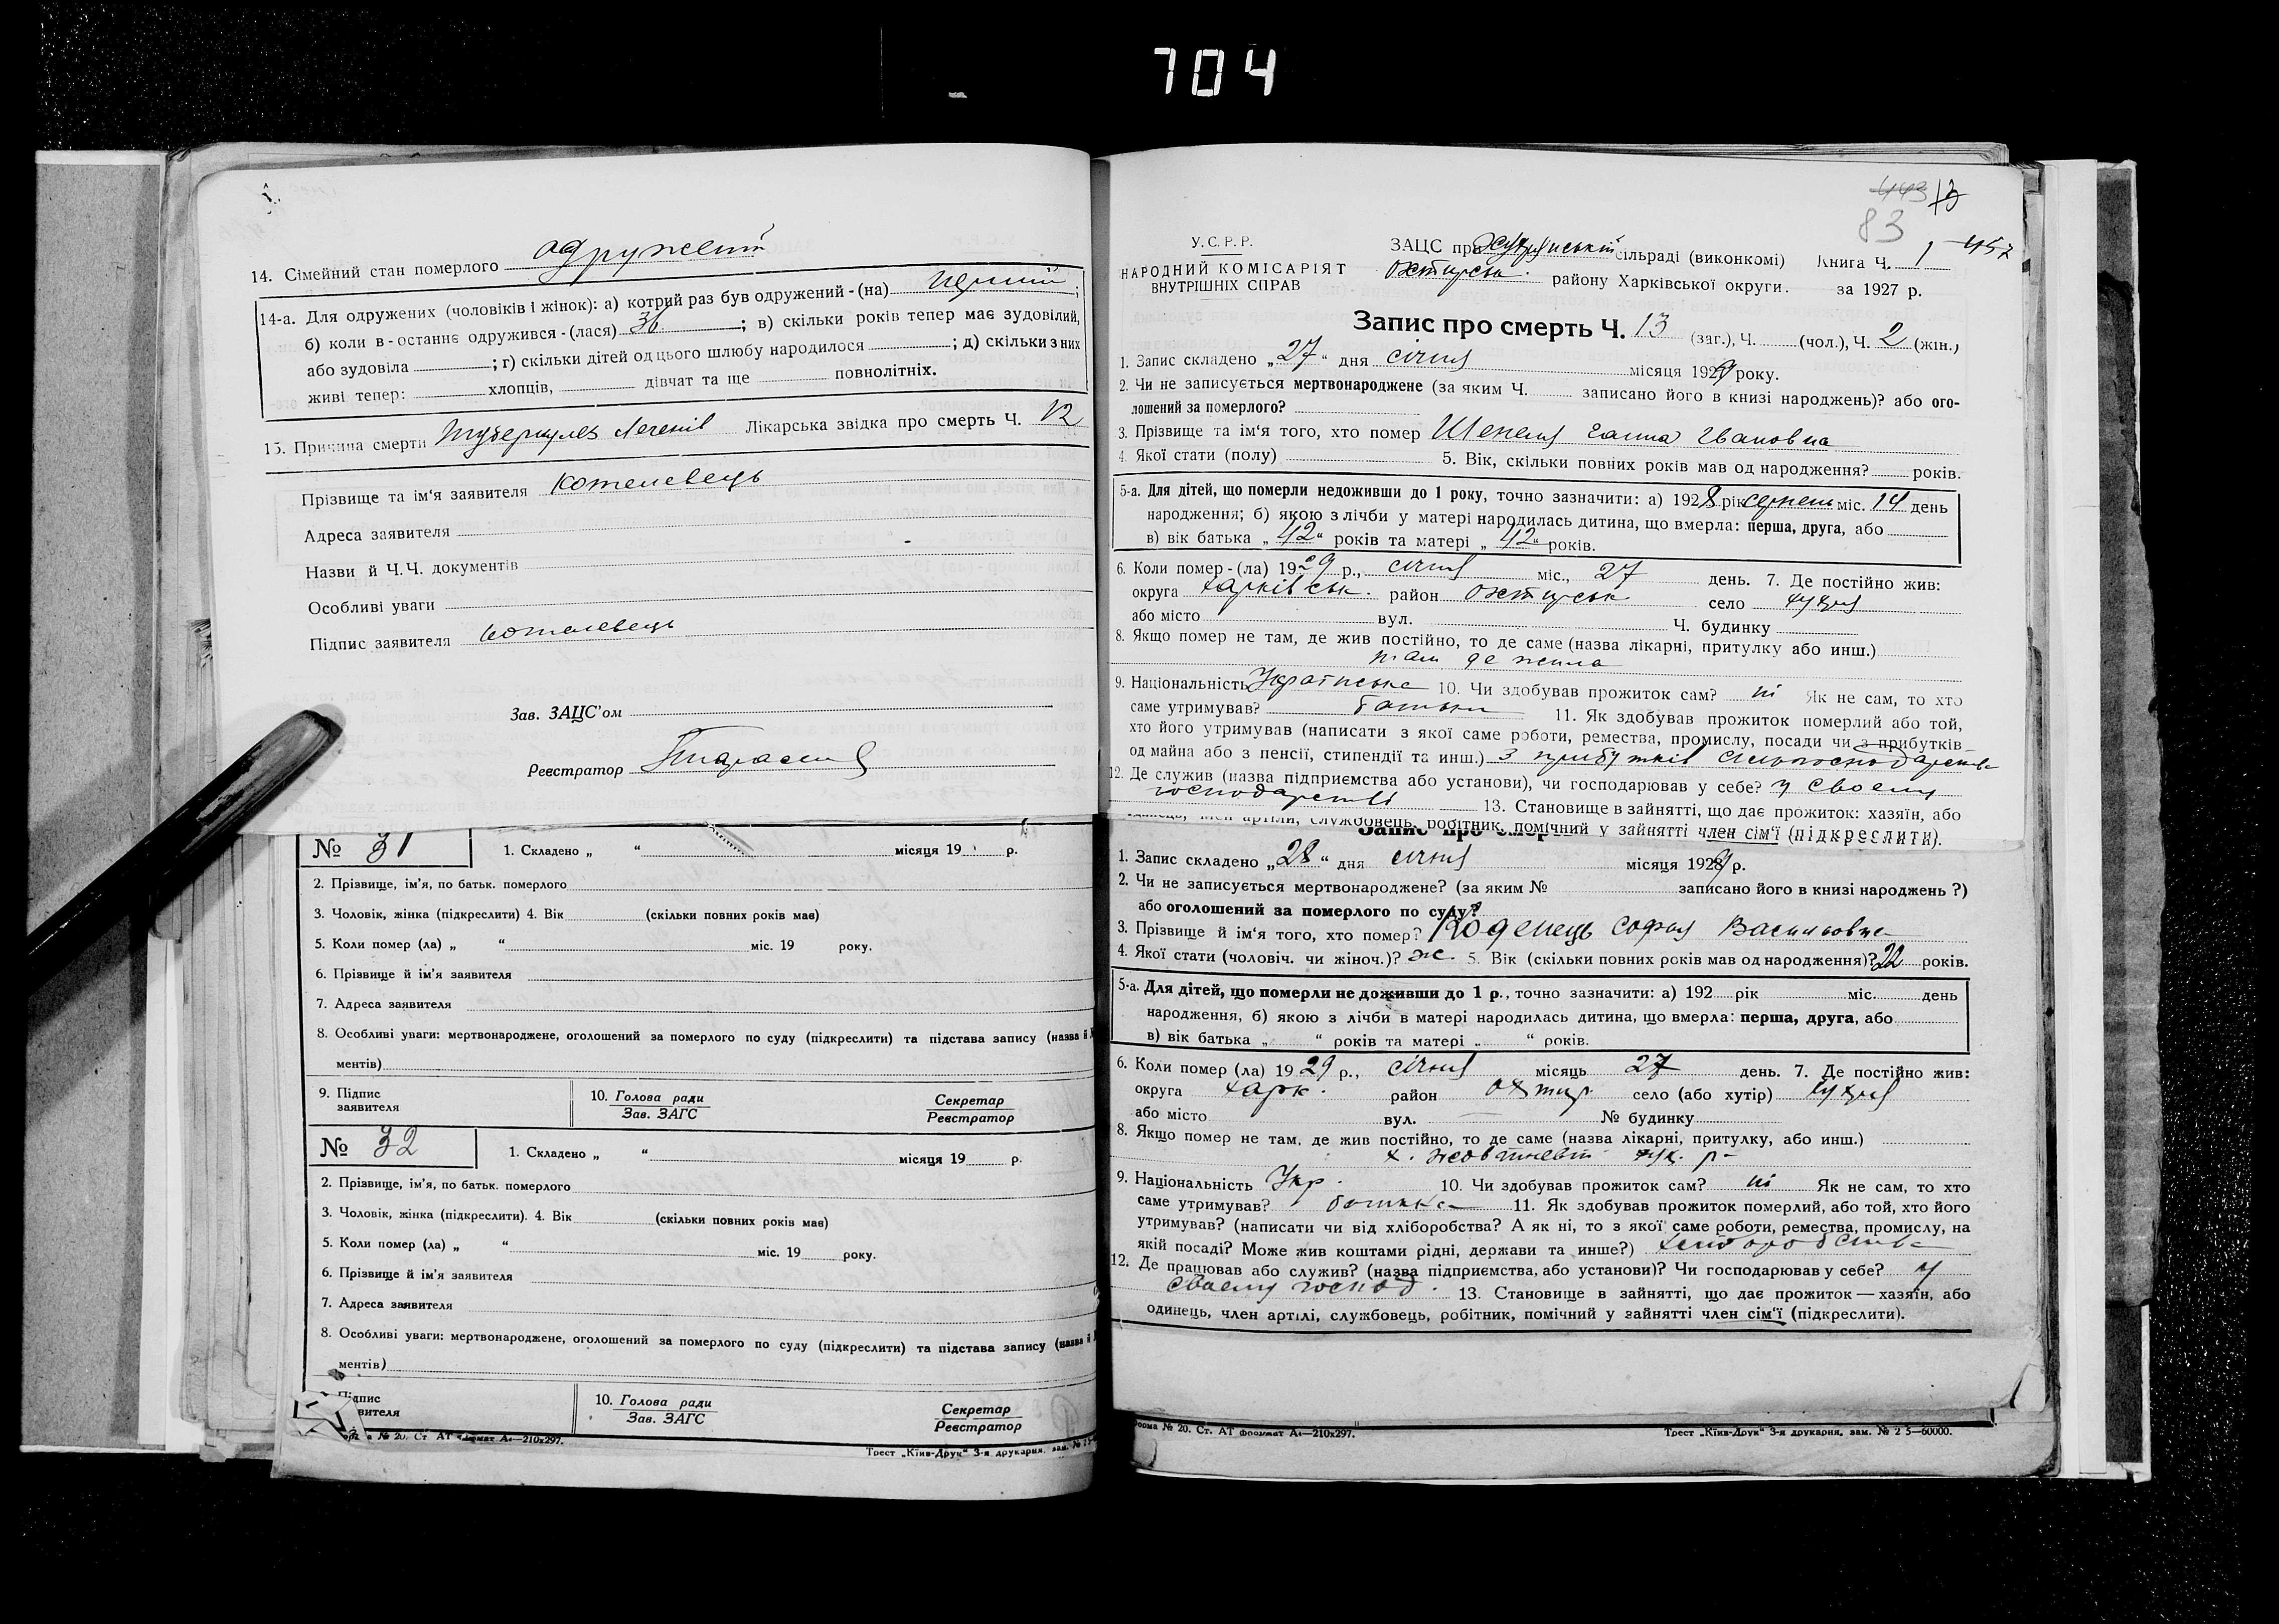 704
14. Сімейний стан померлого одружений
14-а. Для одружених (чоловіків і жінок): а) котрий раз був одружений - (на) перший ;
б) коли в - останнє одружився - (лася) ; в) скільки років тепер має зудовілий,
або зудовіла ; г) скільки дітей од цього шлюбу народилося ; д) скільки з них
живі тепер: хлопців, дівчат та ще повнолітніх.
15. Причина смерти туберкулез легенів Лікарська звідка про смерть Ч. 12
Прізвище та ім'я заявителя Котелевець
Адреса заявителя
Назви й Ч.Ч. документів
Особливі уваги
Підпис заявителя Котелевець
Зав. ЗАЦС'ом
Реєстратор
№ 31 1. Складено „ “ місяця 19 р.
2. Прізвище, ім'я, по батьк. померлого
3. Чоловік, жінка (підкреслити) 4. Вік (скільки повних років має)
5. Коли помер (ла) „ “ міс. 19 року.
6. Прізвище й ім'я заявителя
7. Адреса заявителя
8. Особливі уваги: мертвонароджене, оголошений за померлого по суду (підкреслити) та підстава запису (назва й
ментів)
9. Підпис заявителя 10. Голова ради Секретар
Зав. ЗАГС Реєстратор
№ 32 1. Складено „ “ місяця 19 р.
2. Прізвище, ім'я, по батьк. померлого
3. Чоловік, жінка (підкреслити). 4. Вік (скільки повних років має)
5. Коли помер (ла) „ “ міс. 19 року.
6. Прізвище й ім'я заявителя
7. Адреса заявителя
8. Особливі уваги: мертвонароджене, оголошений за померлого по суду (підкреслити) та підстава запису (назва й
ментів)
Підпис
10. Голова ради Секретар
Зав. ЗАГС Реєстратор
№ 20. Ст. АТ формат А4—210х297.
Трест „Київ-Друк“ 3-я друкарня, зам. №
443 13
83
У.С.Р.Р. ЗАЦС при сільраді (виконкомі) Книга Ч. 1 457
НАРОДНИЙ КОМІСАРІЯТ Охтирськ. району Харківської округи. за 1927 р.
ВНУТРІШНІХ СПРАВ
Запис про смерть Ч. 13 (заг.), Ч. (чол.), Ч. 2 (жін.)
1. Запис складено „27“ дня січня місяця 1929 року.
2. Чи не записується мертвонароджене (за яким Ч. записано його в книзі народжень)? або ого-
лошений за померлого?
3. Прізвище та ім'я того, хто помер Ганна Івановна
4. Якої стати (полу) 5. Вік, скільки повних років мав од народження? років.
5-а. Для дітей, що померли недоживши до 1 року, точно зазначити: а) 1928 рік серпень міс. 14 день
народження; б) якою з лічби у матері народилась дитина, що вмерла: перша, друга, або
в) вік батька „42“ років та матері „42“ років.
6. Коли помер - (ла) 1929 р., січня міс., 27 день. 7. Де постійно жив:
округа Харківськ. район Охтирськ село
або місто вул. Ч. будинку
8. Якщо помер не там, де жив постійно, то де саме (назва лікарні, притулку або инш.)
там де жила
9. Національність Українська 10. Чи здобував прожиток сам? ні Як не сам, то хто
саме утримував? батьки 11. Як здобував прожиток померлий або той,
хто його утримував (написати з якої саме роботи, ремества, промислу, посади чи з прибутків
од майна або з пенсії, стипендії та инш.) з прибутків
12. Де служив (назва підприємства або установи), чи господарював у себе? у своему
господарстві 13. Становище в зайнятті, що дає прожиток: хазяїн, або
одинець, член артіли, службовець, робітник, помічний у зайнятті член сім'ї (підкреслити).
Запис про смерть
1. Запис складено „28“ дня січня місяця 1929 р.
2. Чи не записується мертвонароджене? (за яким № записано його в книзі народжень ?)
або оголошений за померлого по суду?
3. Прізвище й ім'я того, хто помер? Коденець Софья Васильовна
4. Якої стати (чоловіч. чи жіноч.)? ж. 5. Вік (скільки повних років мав од народження)? 22 років.
5-а. Для дітей, що померли не доживши до 1 р., точно зазначити: а) 192 рік міс. день
народження, б) якою з лічби в матері народилась дитина, що вмерла: перша, друга, або
в) вік батька „ “ років та матері „ “ років.
6. Коли помер (ла) 1929 р., січня місяць 27 день. 7. Де постійно жив:
округа Харк. район Охтир. село (або хутір)
або місто вул. № будинку
8. Якщо помер не там, де жив постійно, то де саме (назва лікарні, притулку, або инш.)
9. Національність Укр. 10. Чи здобував прожиток сам? ні Як не сам, то хто
саме утримував? батька 11. Як здобував прожиток померлий, або той, хто його
утримував? (написати чи від хліборобства? А як ні, то з якої саме роботи, ремества, промислу, на
якій посаді? Може жив коштами рідні, держави та инше?) хліборобства
12. Де працював або служив? (назва підприємства, або установи)? Чи господарював у себе? у
своему господ. 13. Становище в зайнятті, що дає прожиток — хазяїн, або
одинець, член артілі, службовець, робітник, помічний у зайнятті член сім'ї (підкреслити).
Форма № 20. Ст. АТ формат А4—210х297.
Трест „Київ-Друк“ 3-я друкарня, зам. № 2 5—60000.